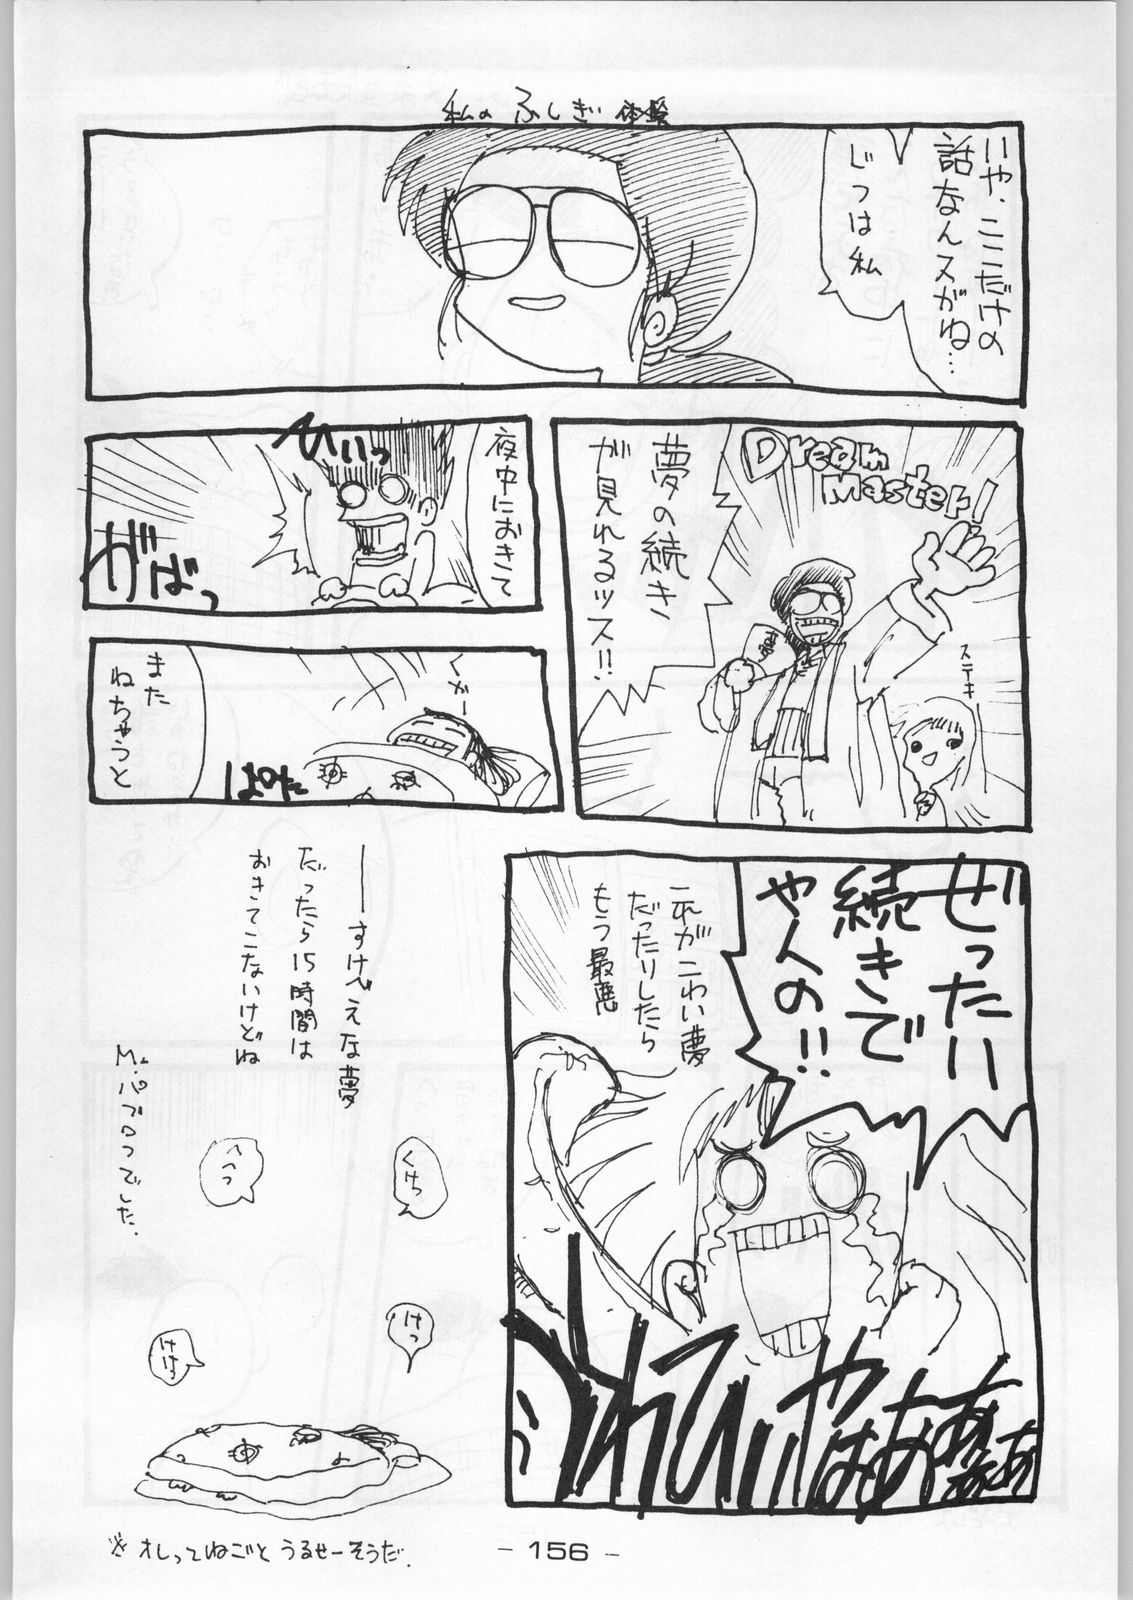 私の ふしぎ 体験
いや、ここだけの
話なんスがね…
じつは私
Dream
Master!
夢の続き
が見れるッス!!
ステキ
夜中におきて
ひいっ
がばっ
くかー
また
ねちゃうと
ぱたた
ぜったい
続きで
やんの!!
これがこわい夢
だったりしたら
もう最悪
うわひいやはああああ
──すけべえな夢
だったら15時間は
おきてこないけどね
Mr.パブロっでした.
へへっ
くけっ
けっ
けけっ
※オレってねごと うるせーそうだ.
- 156 -